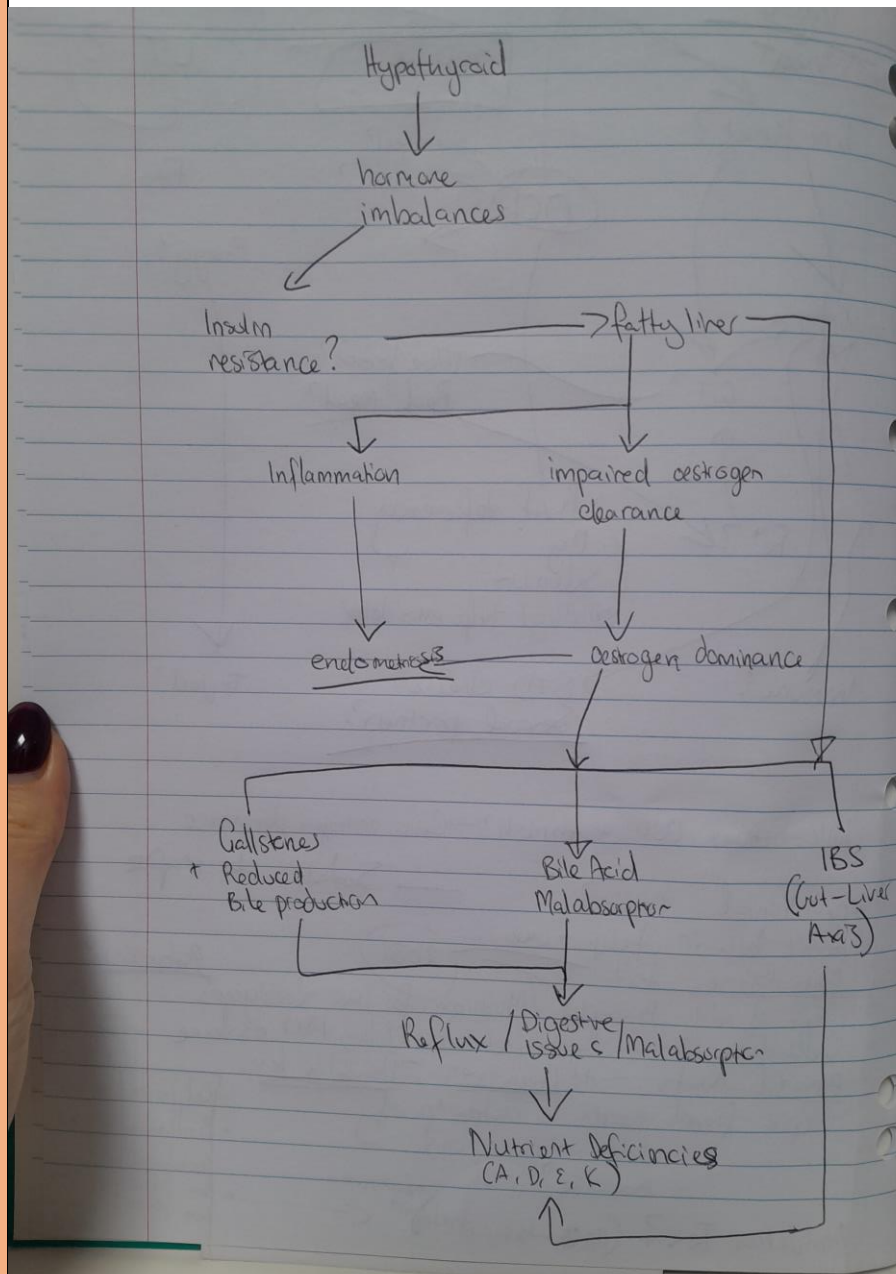 Hypothyroid
hormone
imbalances
Insulin
resistance?
fatty liver
Inflammation
impaired oestrogen
clearance
endometriosis
oestrogen dominance
Gallstones
+ Reduced
Bile production
Bile Acid
Malabsorption
IBS
(Gut-Liver
Axis)
Reflux / Digestive issues / Malabsorption
Nutrient Deficiencies
(A, D, E, K)